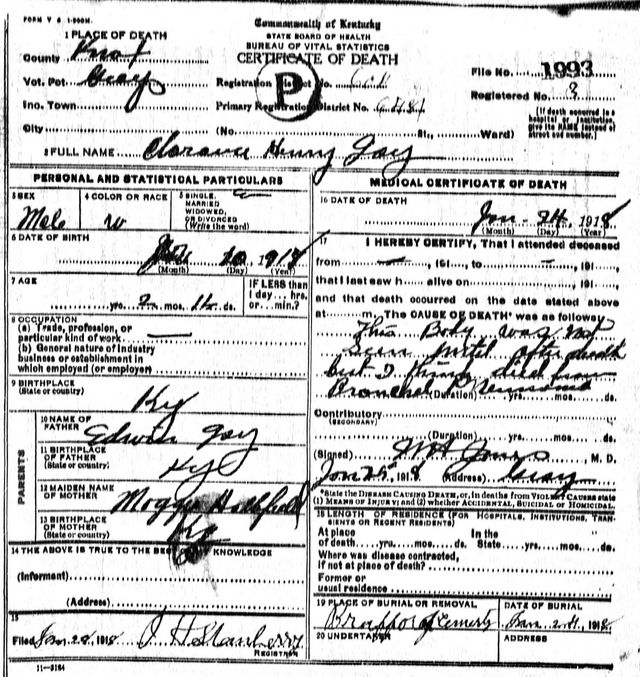 FORM V S 1-200M.
Commonwealth of Kentucky
STATE BOARD OF HEALTH
BUREAU OF VITAL STATISTICS
CERTIFICATE OF DEATH
1 PLACE OF DEATH
County Knox
Vot. Pct. Gray
Inc. Town
City
Registration District No.
Primary Registration District No.
P
(No. St., Ward)
File No. 1993
Registered No. 8
(If death occurred in a hospital or institution, give its NAME instead of street and number.)
2 FULL NAME Clarance Henry Gay
PERSONAL AND STATISTICAL PARTICULARS
3 SEX
Male
4 COLOR OR RACE
W
5 SINGLE, MARRIED WIDOWED, OR DIVORCED (Write the word)
6 DATE OF BIRTH
10 191
(Month) (Day) (Year)
7 AGE
yrs. mos. ds.
IF LESS than 1 day... hrs. or... min.?
8 OCCUPATION
(a) Trade, profession, or particular kind of work
(b) General nature of industry business or establishment in which employed (or employer)
9 BIRTHPLACE
(State or country)
Ky
PARENTS
10 NAME OF FATHER
Edwin Gay
11 BIRTHPLACE OF FATHER (State or country)
Ky
12 MAIDEN NAME OF MOTHER
Moggie
13 BIRTHPLACE OF MOTHER (State or country)
Ky
14 THE ABOVE IS TRUE TO THE BEST OF KNOWLEDGE
(Informant)
(Address)
15
Filed Jan 28, 1918 J H Stanberry
REGISTRAR
11-3184
MEDICAL CERTIFICATE OF DEATH
16 DATE OF DEATH
Jan 24, 1918
(Month) (Day) (Year)
17 I HEREBY CERTIFY, That I attended deceased
from , 191 , to , 191 ,
that I last saw h alive on , 191 ,
and that death occurred on the date stated above
at m. The CAUSE OF DEATH* was as follows:
This Body was not
seen until after death
but I think died from
Bronchal Pneumonia
(Duration) yrs. mos. ds.
Contributory
(SECONDARY)
(Duration) yrs. mos. ds.
(Signed) Jones, M. D.
Jan 25, 1918 (Address) Gray
*State the DISEASE CAUSING DEATH, or, in deaths from VIOLENT CAUSES state
(1) MEANS OF INJURY; and (2) whether ACCIDENTAL, SUICIDAL or HOMICIDAL.
18 LENGTH OF RESIDENCE (FOR HOSPITALS, INSTITUTIONS, TRANSIENTS OR RECENT RESIDENTS)
At place of death yrs. mos. ds. In the State yrs. mos. ds.
Where was disease contracted, if not at place of death?
Former or usual residence
19 PLACE OF BURIAL OR REMOVAL
DATE OF BURIAL
Jan 1918
20 UNDERTAKER
ADDRESS